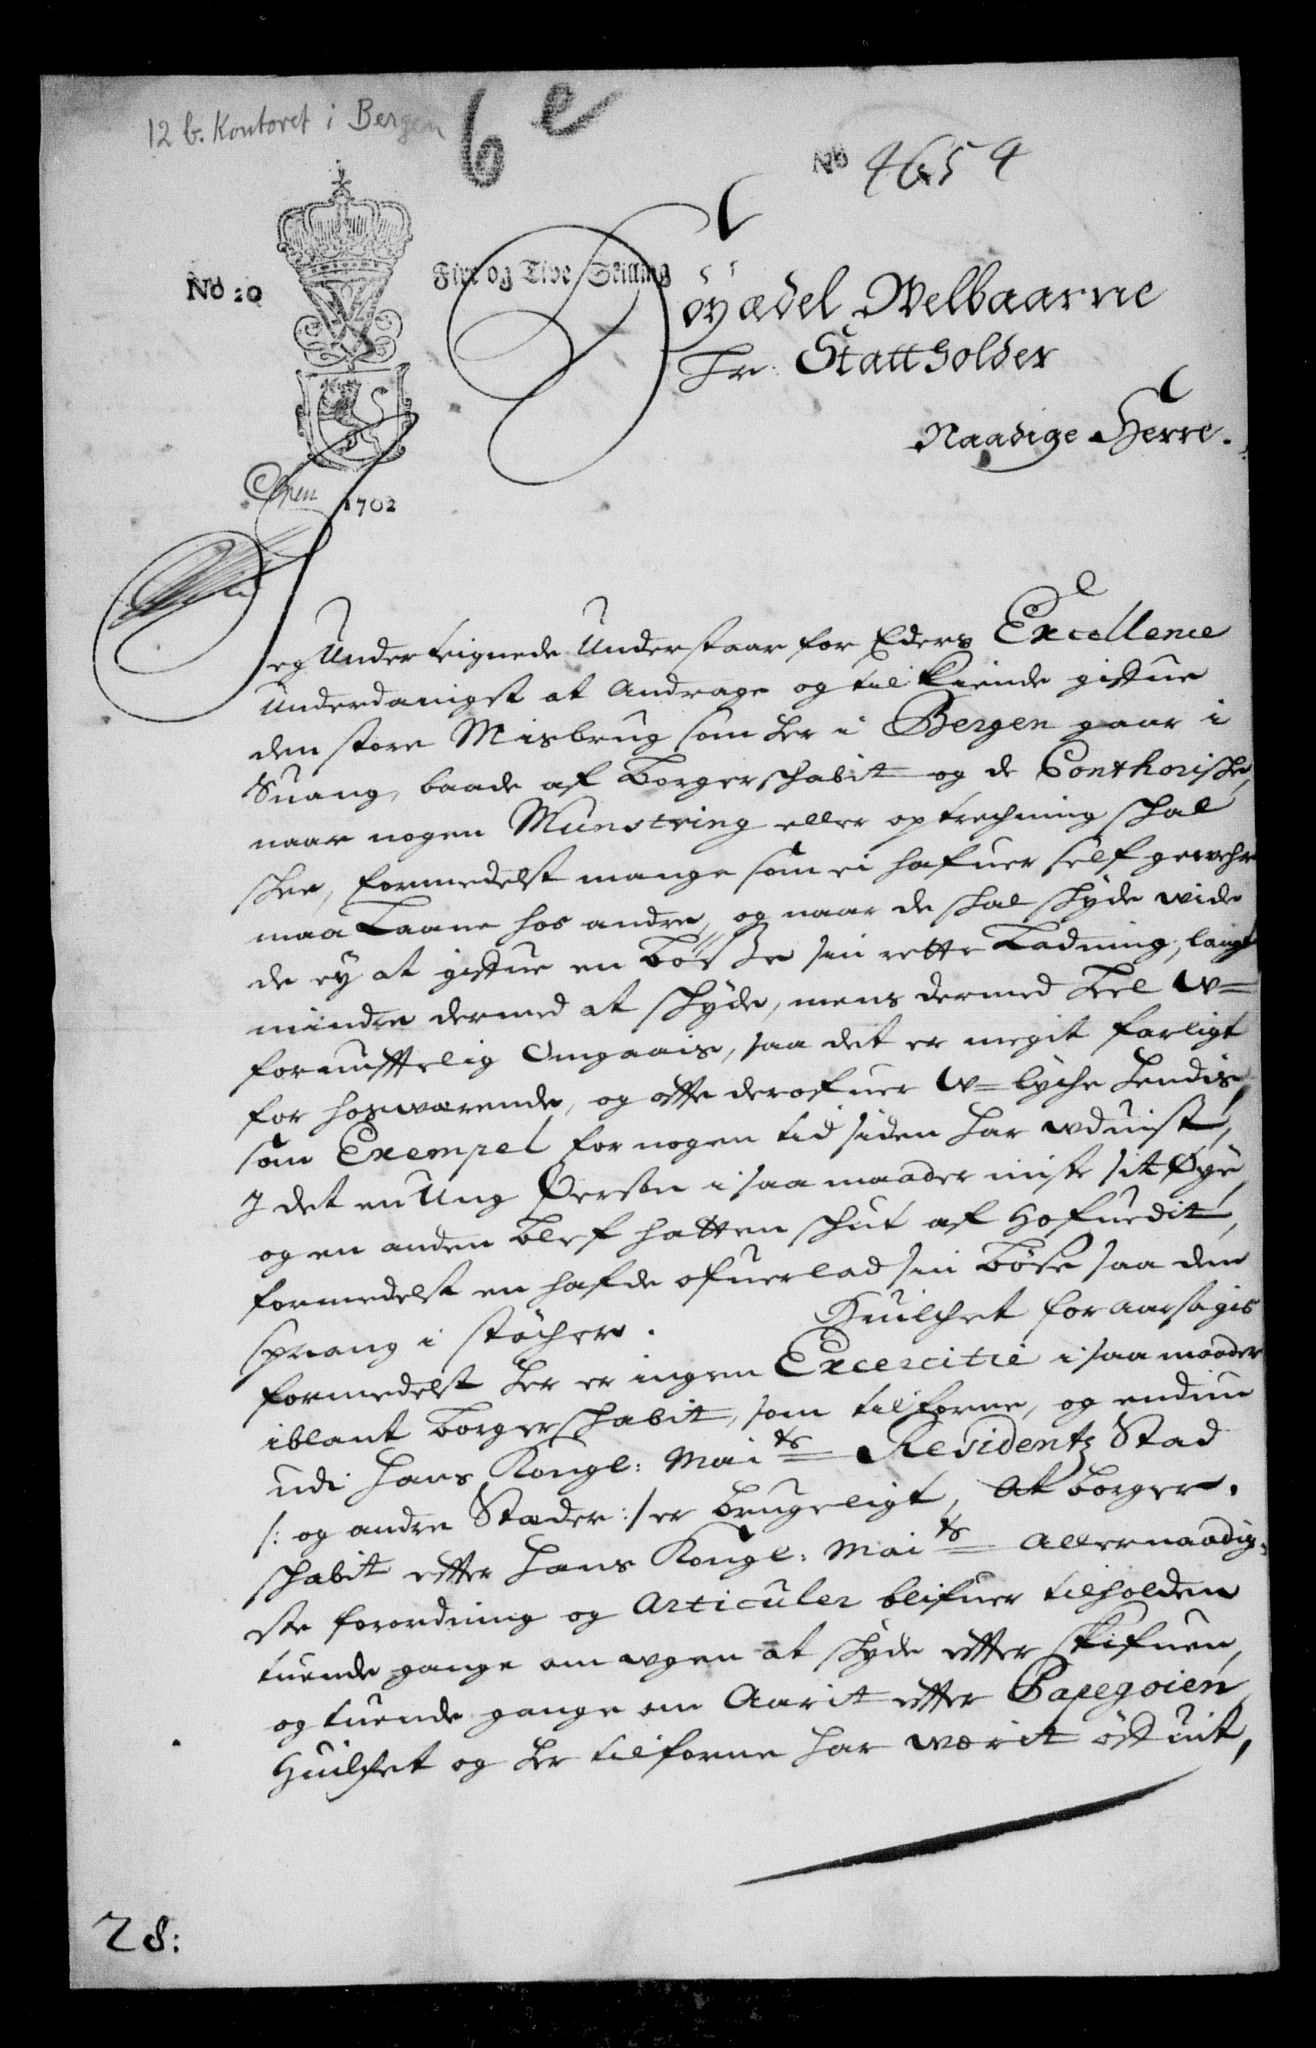 12 b. Kontoret i Bergen
6 e
No 4654
No: 0
Fire og Tive Skilling
Høyædel Welbaarne
Hr. Stattholder
Naadige Herre.
1702
Jeg Underteignede Understaar for Eders Excellence
Underdanigst at Andrage og tilkiende giffue
den store Misbrug som her i Bergen gaar i
Suang, baade af Borgerschabit og de Conthorische,
naar nogen Munstring eller optrechning schal
schee, formedelst mange som ei hafuer self gewehr
maa Laane hos andre, og naar de schal schyde wide
de ey at giffue en Bøsse sin rette Ladning, langt
mindre dermed at schyde, mens dermed heel W=
fornufftelig Omgaais, saa det er megit farligt
for hoswærende, og offte derofuer W=lyche hendis,
som Exempel for nogen tid siden har wduist,
I det en Ung Person i saa maader miste sit Øye,
og en anden blef hatten schut af Hofuedit,
formedelst en hafde ofuerlad sin Bøse saa den
sprang i støcher. Huilchet foraarsagis
formedelst her er ingen Excercitie i saa maader
iblant borgerschabit, som tilforne, og endnu
udi Hans Kongl: Maits Residentz Stad
/: og andre Stæder :/ er brugeligt, At borger-
schabit effter Hans Kongl: Maits Allernaadig-
ste forordning og Articuler blifuer tilholden
tuende gange om wgen at schyde effter skifuen,
og tuende gange om Aarit effter Papegoien,
Huilchet og her tilforne har wærit øffuit,
28: